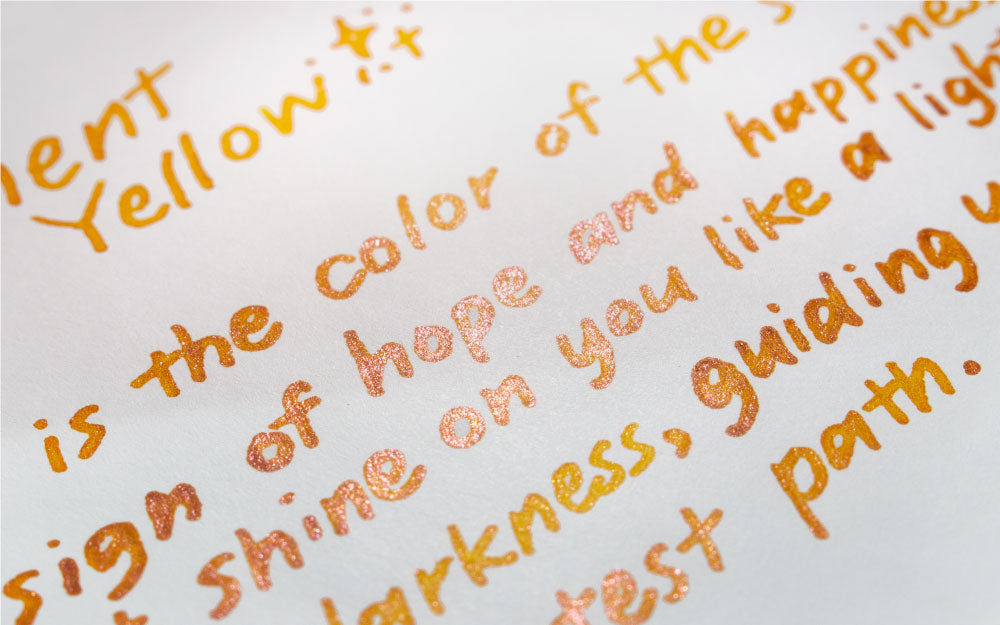 Yellow
is the color of the
sign of hope and happiness
shine on you like a light
darkness, guiding
path.